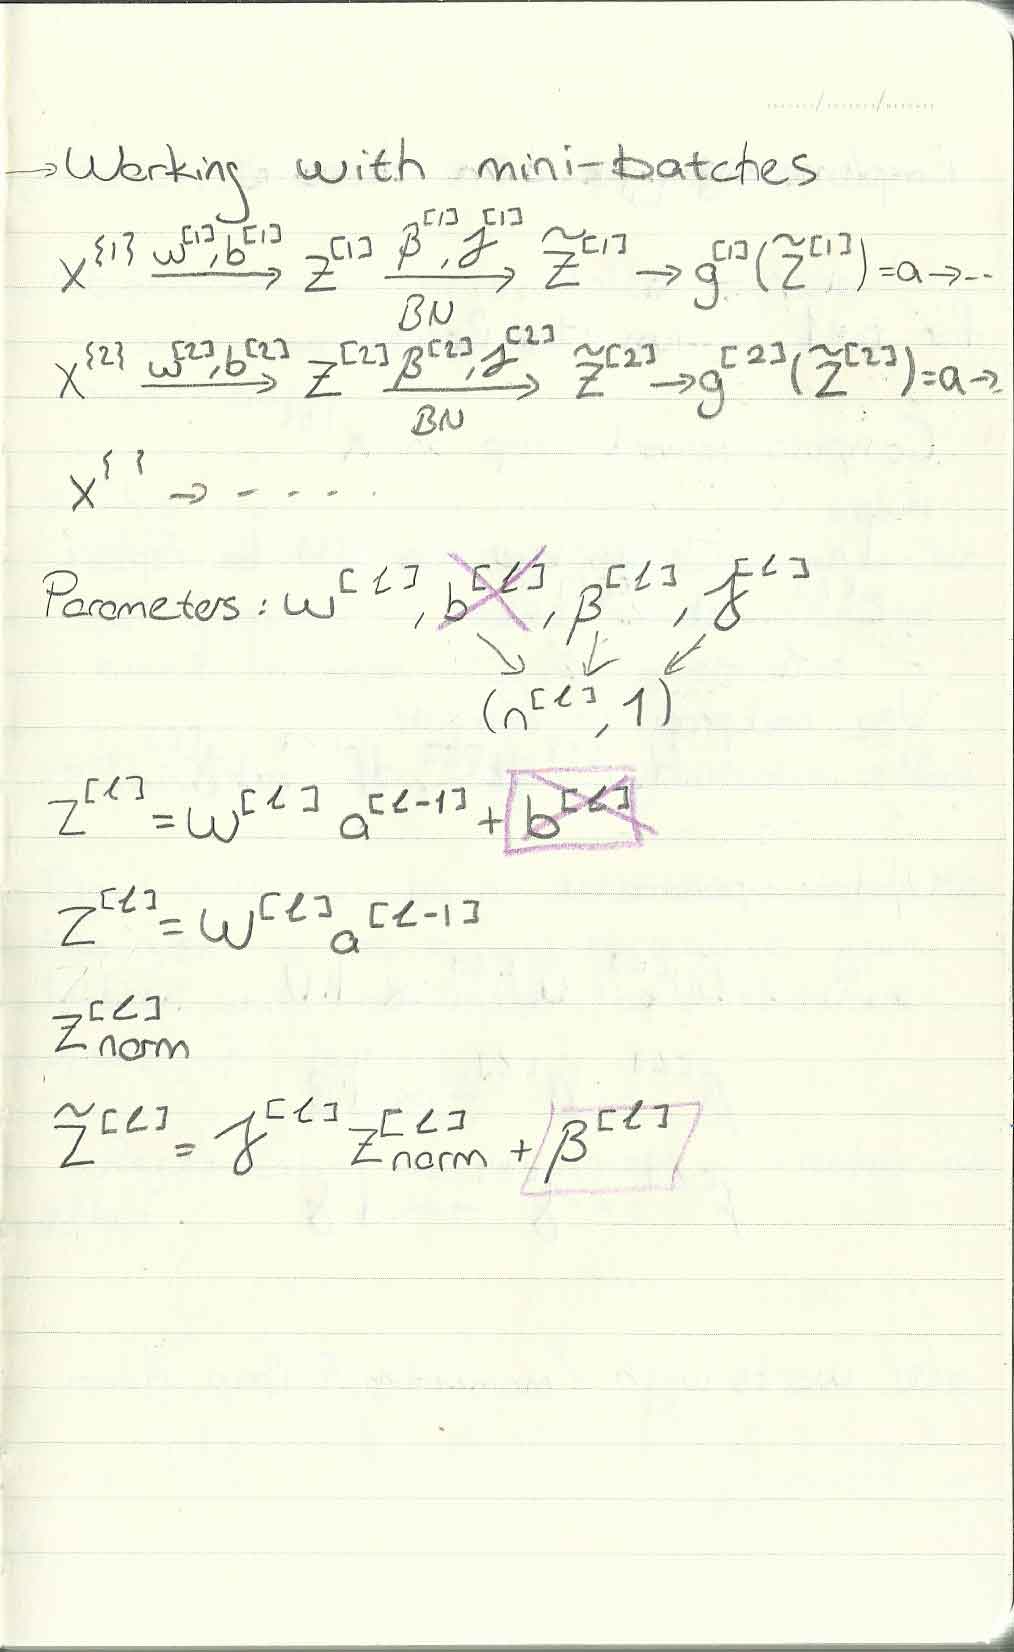 →Working with mini-batches
X^{1} —w^[1], b^[1]→ Z^[1] —β^[1], γ^[1]→ Z̃^[1] → g^[1](Z̃^[1]) = a → --
BN
X^{2} —w^[2], b^[2]→ Z^[2] —β^[2], γ^[2]→ Z̃^[2] → g^[2](Z̃^[2]) = a →
BN
X^{ } → - - - .
Parameters: w^[l], b^[l], β^[l], γ^[l]
(n^[l], 1)
Z^[l] = W^[l] a^[l-1] + b^[l]
Z^[l] = W^[l] a^[l-1]
Z^[l]_norm
Z̃^[l] = γ^[l] Z^[l]_norm + β^[l]